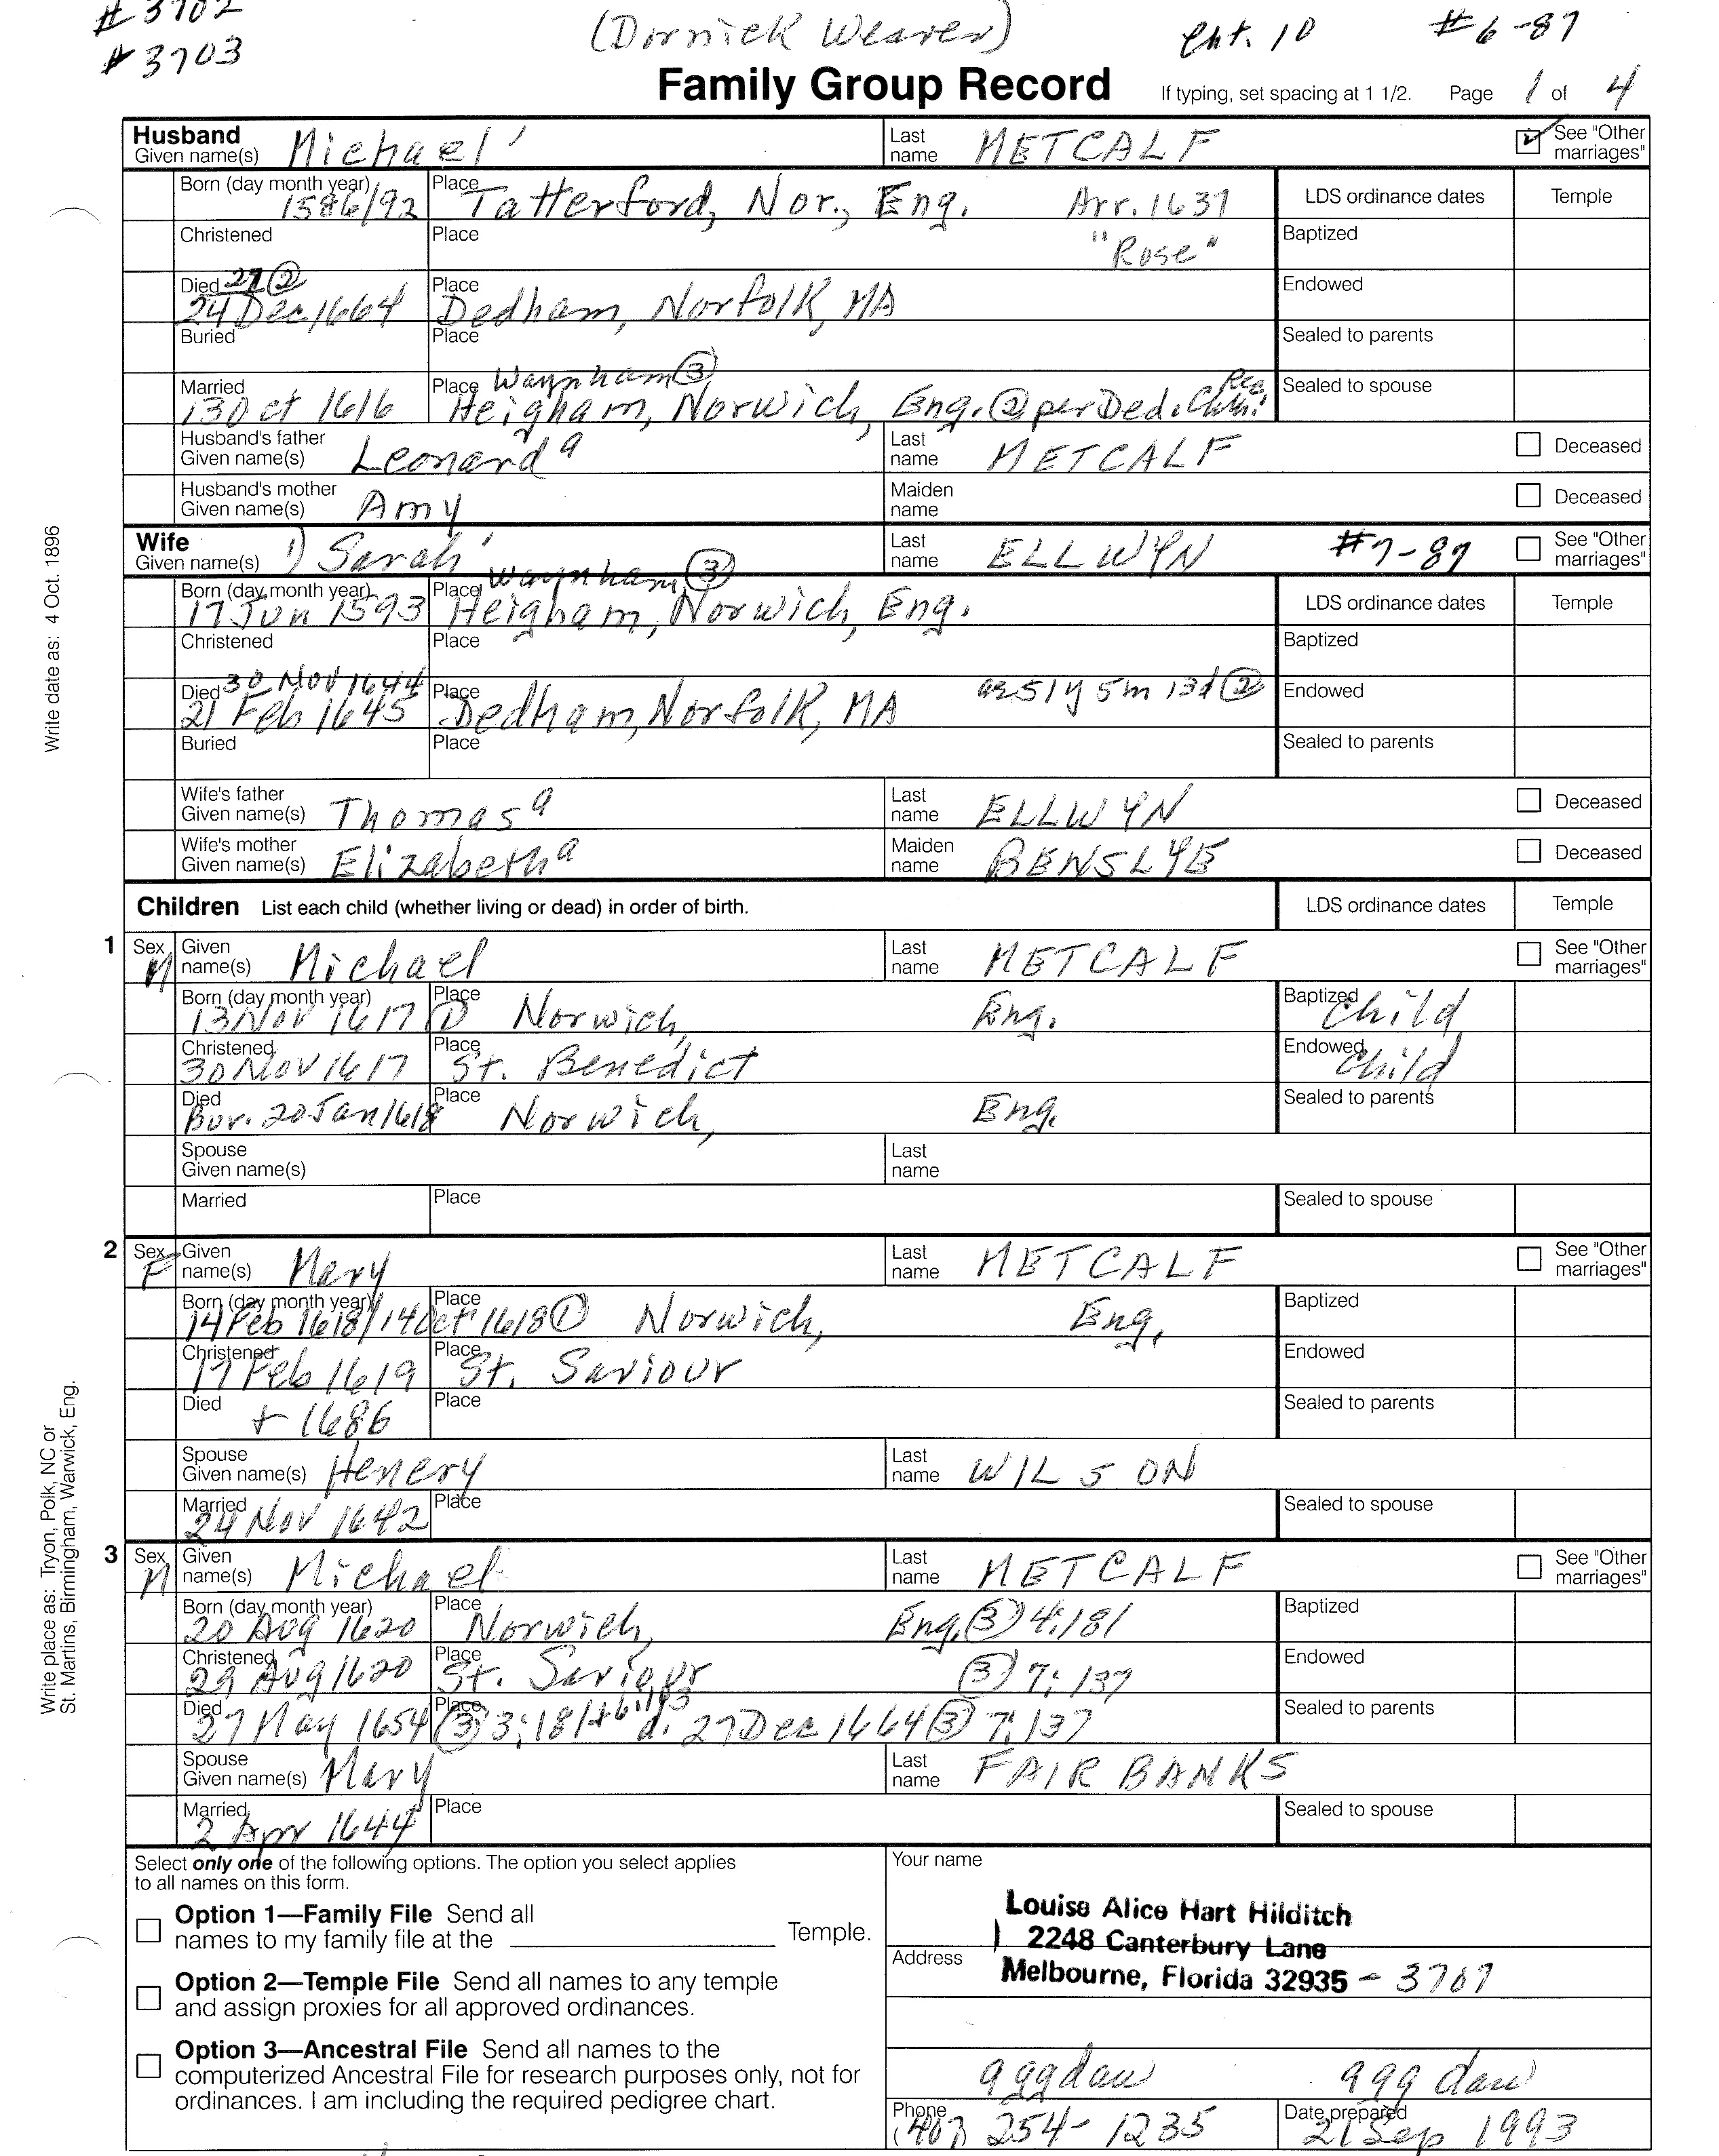 # 3702
# 3703
(Dornick Weaver)
Cht. 10
#6-87
Family Group Record
If typing, set spacing at 1 1/2. Page 1 of 4
Husband
Given name(s) Michael'
Last name METCALF
See "Other marriages"
Born (day month year) 1586/92
Place Tatterford, Nor., Eng. Arr. 1637
LDS ordinance dates
Temple
Christened
Place "Rose"
Baptized
Died 27 ②
24 Dec 1664
Place Dedham, Norfolk, MA
Endowed
Buried
Place
Sealed to parents
Married 13 Oct 1616
Place Waynham ③
Heigham, Norwich, Eng. ② per Ded. Chh. Rec.
Sealed to spouse
Husband's father
Given name(s) Leonard a
Last name METCALF
Deceased
Husband's mother
Given name(s) Amy
Maiden name
Deceased
Wife
Given name(s) 1) Sarah'
Last name ELLWYN #7-87
See "Other marriages"
Born (day month year) 17 Jun 1593
Place Waynham ③
Heigham, Norwich, Eng.
LDS ordinance dates
Temple
Christened
Place
Baptized
Died 30 Nov 1644
21 Feb 1645
Place Dedham, Norfolk, MA ae 51y 5m 13d ②
Endowed
Buried
Place
Sealed to parents
Wife's father
Given name(s) Thomas a
Last name ELLWYN
Deceased
Wife's mother
Given name(s) Elizabeth a
Maiden name BENSLYE
Deceased
Children List each child (whether living or dead) in order of birth.
LDS ordinance dates
Temple
1 Sex M
Given name(s) Michael
Last name METCALF
See "Other marriages"
Born (day month year) 13 Nov 1617 ①
Place Norwich, Eng.
Baptized Child
Christened 30 Nov 1617
Place St. Benedict
Endowed Child
Died Bur. 20 Jan 1618
Place Norwich, Eng.
Sealed to parents
Spouse
Given name(s)
Last name
Married
Place
Sealed to spouse
2 Sex F
Given name(s) Mary
Last name METCALF
See "Other marriages"
Born (day month year) 14 Feb 1618/14 Oct 1618 ①
Place Norwich, Eng.
Baptized
Christened 17 Feb 1619
Place St. Saviour
Endowed
Died + 1686
Place
Sealed to parents
Spouse
Given name(s) Henery
Last name WILSON
Married 24 Nov 1642
Place
Sealed to spouse
3 Sex M
Given name(s) Michael
Last name METCALF
See "Other marriages"
Born (day month year) 20 Aug 1620
Place Norwich, Eng. ③ 4:181
Baptized
Christened 29 Aug 1620
Place St. Saviour ③ 7:137
Endowed
Died 27 May 1654
Place ③ 3:181+ d. 27 Dec 1664 ③ 7:137
Sealed to parents
Spouse
Given name(s) Mary
Last name FAIRBANKS
Married 2 Apr 1644
Place
Sealed to spouse
Select only one of the following options. The option you select applies
to all names on this form.
Option 1—Family File Send all
names to my family file at the Temple.
Option 2—Temple File Send all names to any temple
and assign proxies for all approved ordinances.
Option 3—Ancestral File Send all names to the
computerized Ancestral File for research purposes only, not for
ordinances. I am including the required pedigree chart.
Your name
Louise Alice Hart Hilditch
2248 Canterbury Lane
Address
Melbourne, Florida 32935 - 3767
Phone (407) 254-1235
Date prepared 21 Sep 1993
Write date as: 4 Oct. 1896
Write place as: Tryon, Polk, NC or
St. Martins, Birmingham, Warwick, Eng.